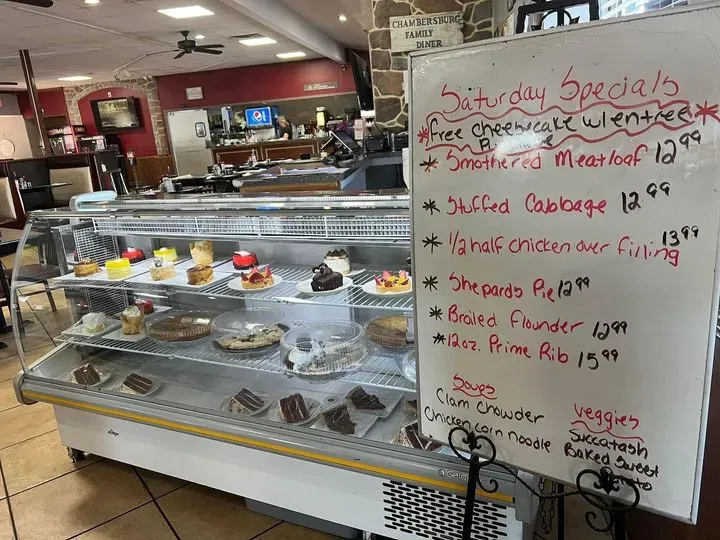 CHAMBERSBURG
FAMILY
DINER
pepsi
Saturday Specials
* Free cheesecake w/entree *
* Smothered Meatloaf 12.99
* Stuffed Cabbage 12.99
* 1/2 half chicken over filling 13.99
* Shepards Pie 12.99
* Broiled Flounder 12.99
* 12oz. Prime Rib 15.99
Soups
Clam Chowder
Chicken corn noodle
Veggies
Succatash
Baked Sweet